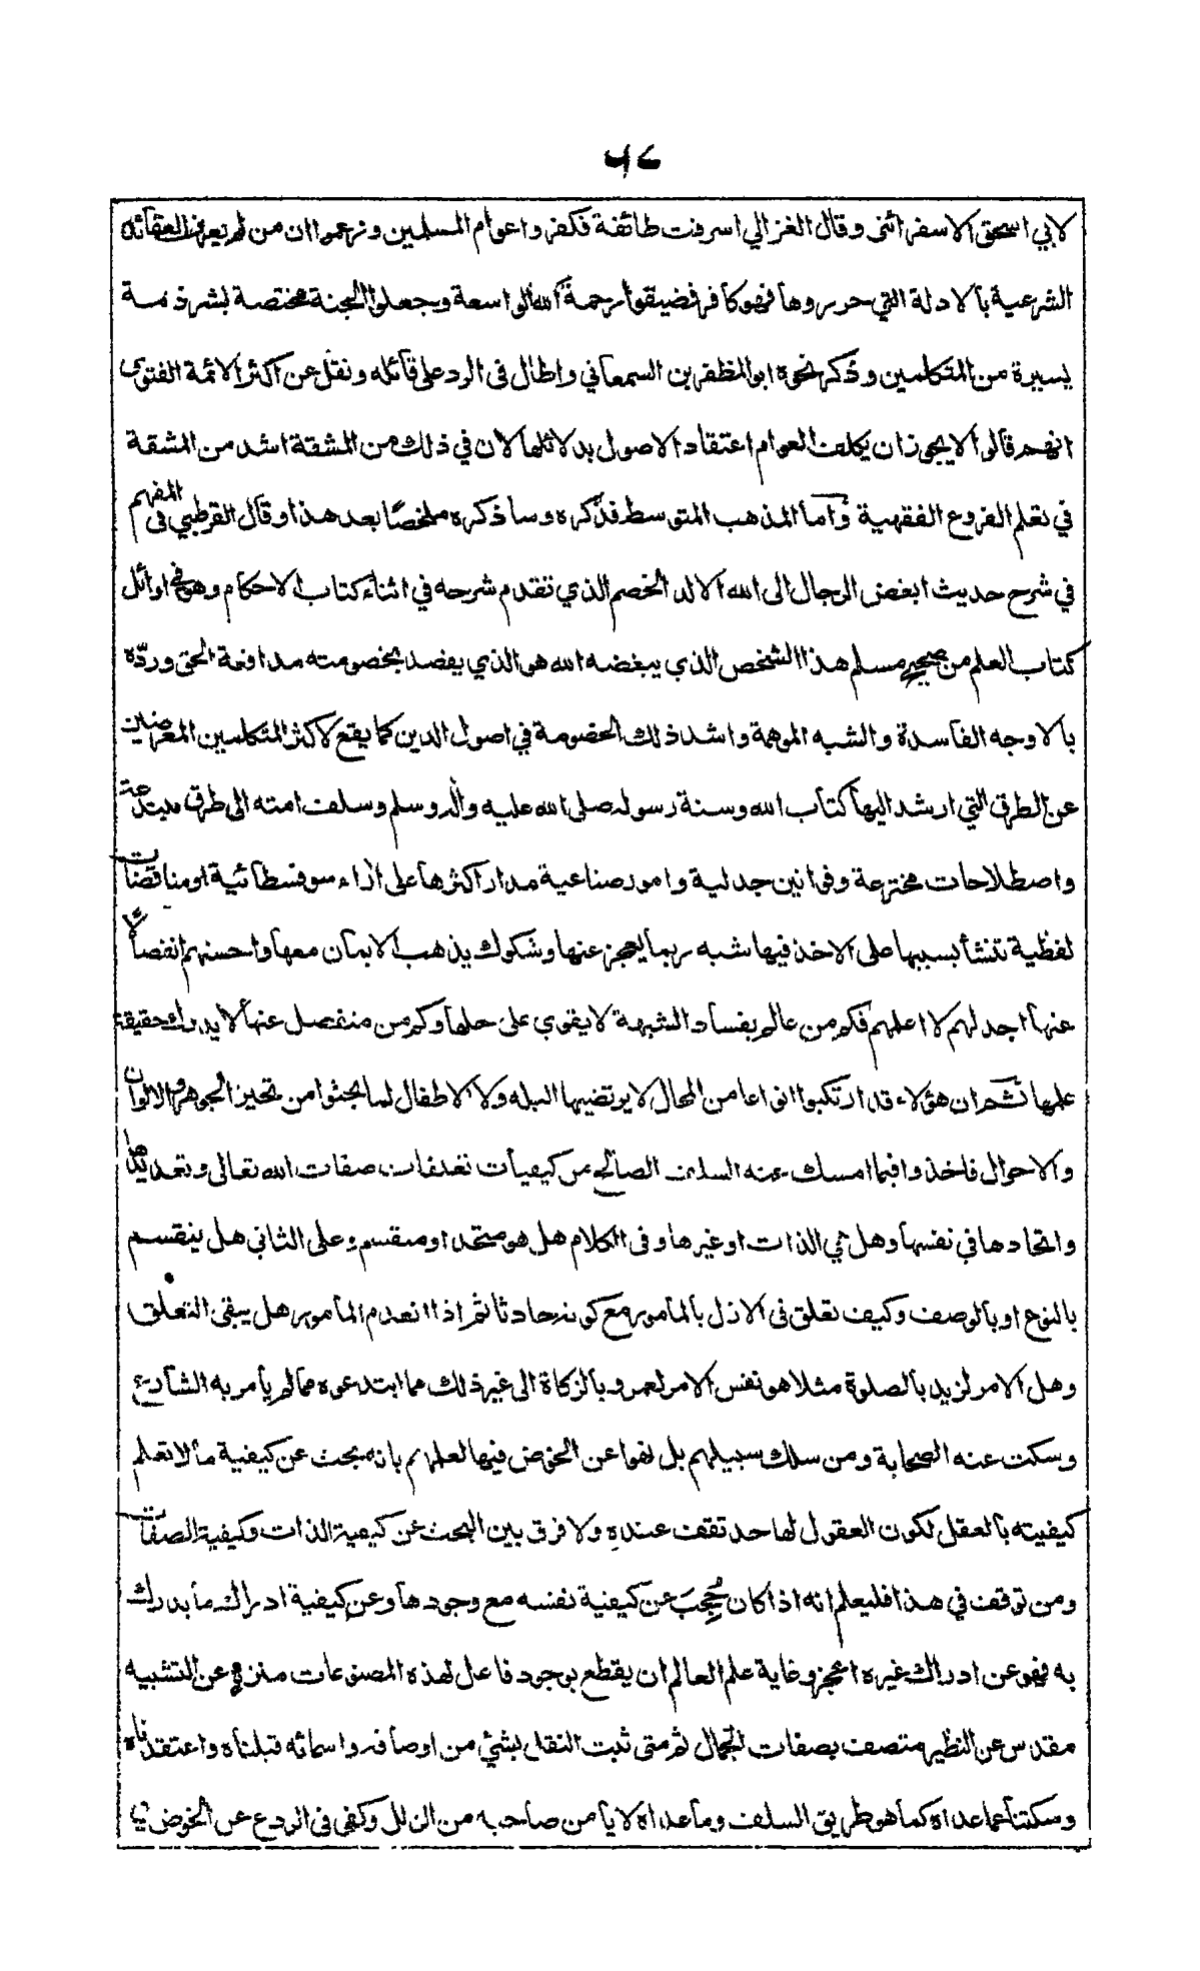 ٤٦
لابي اسحق الاسفرائنى وقال الغزالي اسرفت طائفة فكفروا عوام المسلمين وزعموا ان من لم يعرف العقائد
الشرعية بالادلة التي حرروها فهو كافر فضيقوا رحمة الله الواسعة وجعلوا الجنة مختصة بشرذمة
يسيرة من المتكلمين وذكر نحوه ابو المظفر بن السمعاني واطال فى الرد على قائله ونقل عن اكثر الائمة الفتوى
انهم قالوا لا يجوز ان يكلف العوام اعتقاد الاصول بدلائلها لان في ذلك من المشقة اشد من المشقة
في تعلم الفروع الفقهية وآما المذهب المتوسط فذكره وساذكره ملخصًا بعد هذا وقال القرطبي فى المفهم
في شرح حديث ابغض الرجال الى الله الالد الخصم الذي تقدم شرحه في اثناء كتاب الاحكام وهو في اوائل
كتاب العلم من صحيح مسلم هذا الشخص الذي يبغضه الله هو الذي يقصد بخصومته مدافعة الحق وردّه
بالاوجه الفاسدة والشبه الموهمة واشد ذلك الخصومة في اصول الدين كما يقع لاكثر المتكلمين المعرضين
عن الطرق التي ارشد اليها كتاب الله وسنة رسوله صلى الله عليه واٰله وسلم وسلف امته الى طرق مبتدعة
واصطلاحات مخترعة وقوانين جدلية وامور صناعية مدار اكثرها على اٰراء سوفسطائية او مناقضات
لفظية تنشأ بسببها على الاخذ فيها شبه ربما يعجز عنها وشكوك يذهب الايمان معها واحسنهم انفصالًا
عنها اجدلهم لا اعلمهم فكم من عالم بفساد الشبهة لا يقوي على حلها وكم من منفصل عنها لا يدرك حقيقة
علمها ثم ان هؤلاء قد ارتكبوا انواعا من المحال لا يرتضيها البله ولا الاطفال لما بحثوا من تحيز الجوهر والالوان
والاحوال فاخذوا فيما امسك عنه السلف الصالح من كيفيات تعلقات صفات الله تعالى وتعديدها
واتحادها في نفسها وهل هي الذات او غيرها وفى الكلام هل هو متحد او منقسم وعلى الثاني هل ينقسم
بالنوع او بالوصف وكيف تعلق فى الازل بالمأمور مع كونه حادثا ثم اذا انعدم المأمور هل يبقى التعلق
وهل الامر لزيد بالصلوة مثلا هو نفس الامر لعمرو بالزكاة الى غير ذلك مما ابتدعوه مما لم يأمر به الشارع
وسكت عنه الصحابة ومن سلك سبيلهم بل نهوا عن الخوض فيها لعلمهم بانه بحث عن كيفية ما لا تعلم
كيفيته بالعقل لكون العقول لها حد تقف عنده ولا فرق بين البحث عن كيفية الذات وكيفية الصفات
ومن توقف في هذا فليعلم انه اذا كان حُجِبَ عن كيفية نفسه مع وجودها وعن كيفية ادراك ما يدرك
به فهو عن ادراك غيره اعجز وغاية علم العالم ان يقطع بوجود فاعل لهذه المصنوعات منزه عن التشبيه
مقدس عن النظير متصف بصفات الكمال ثم متى ثبت النقل بشئ من اوصافه واسمائه قبلناه واعتقدناه
وسكتنا عما عداه كما هو طريق السلف وما عداه لا يأمن صاحبه من الزلل وكفى فى الردع عن الخوض في